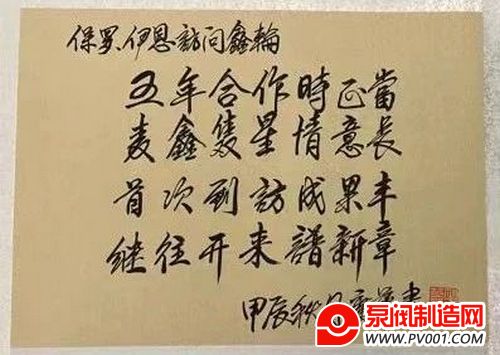 保罗、伊恩訪问鑫輪
五年合作時正當
麦鑫隻星情意长
首次到訪成果丰
继往开来譜新章
甲辰秋月
泵阀制造网
WWW.PV001.COM